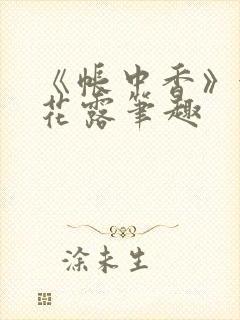 《帐中香》
花露笔趣
涂未生